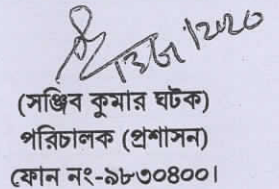 (সঞ্জিব কুমার ঘটক)
পরিচালক (প্রশাসন)
ফোন নং-৯৮৩০৪০০।